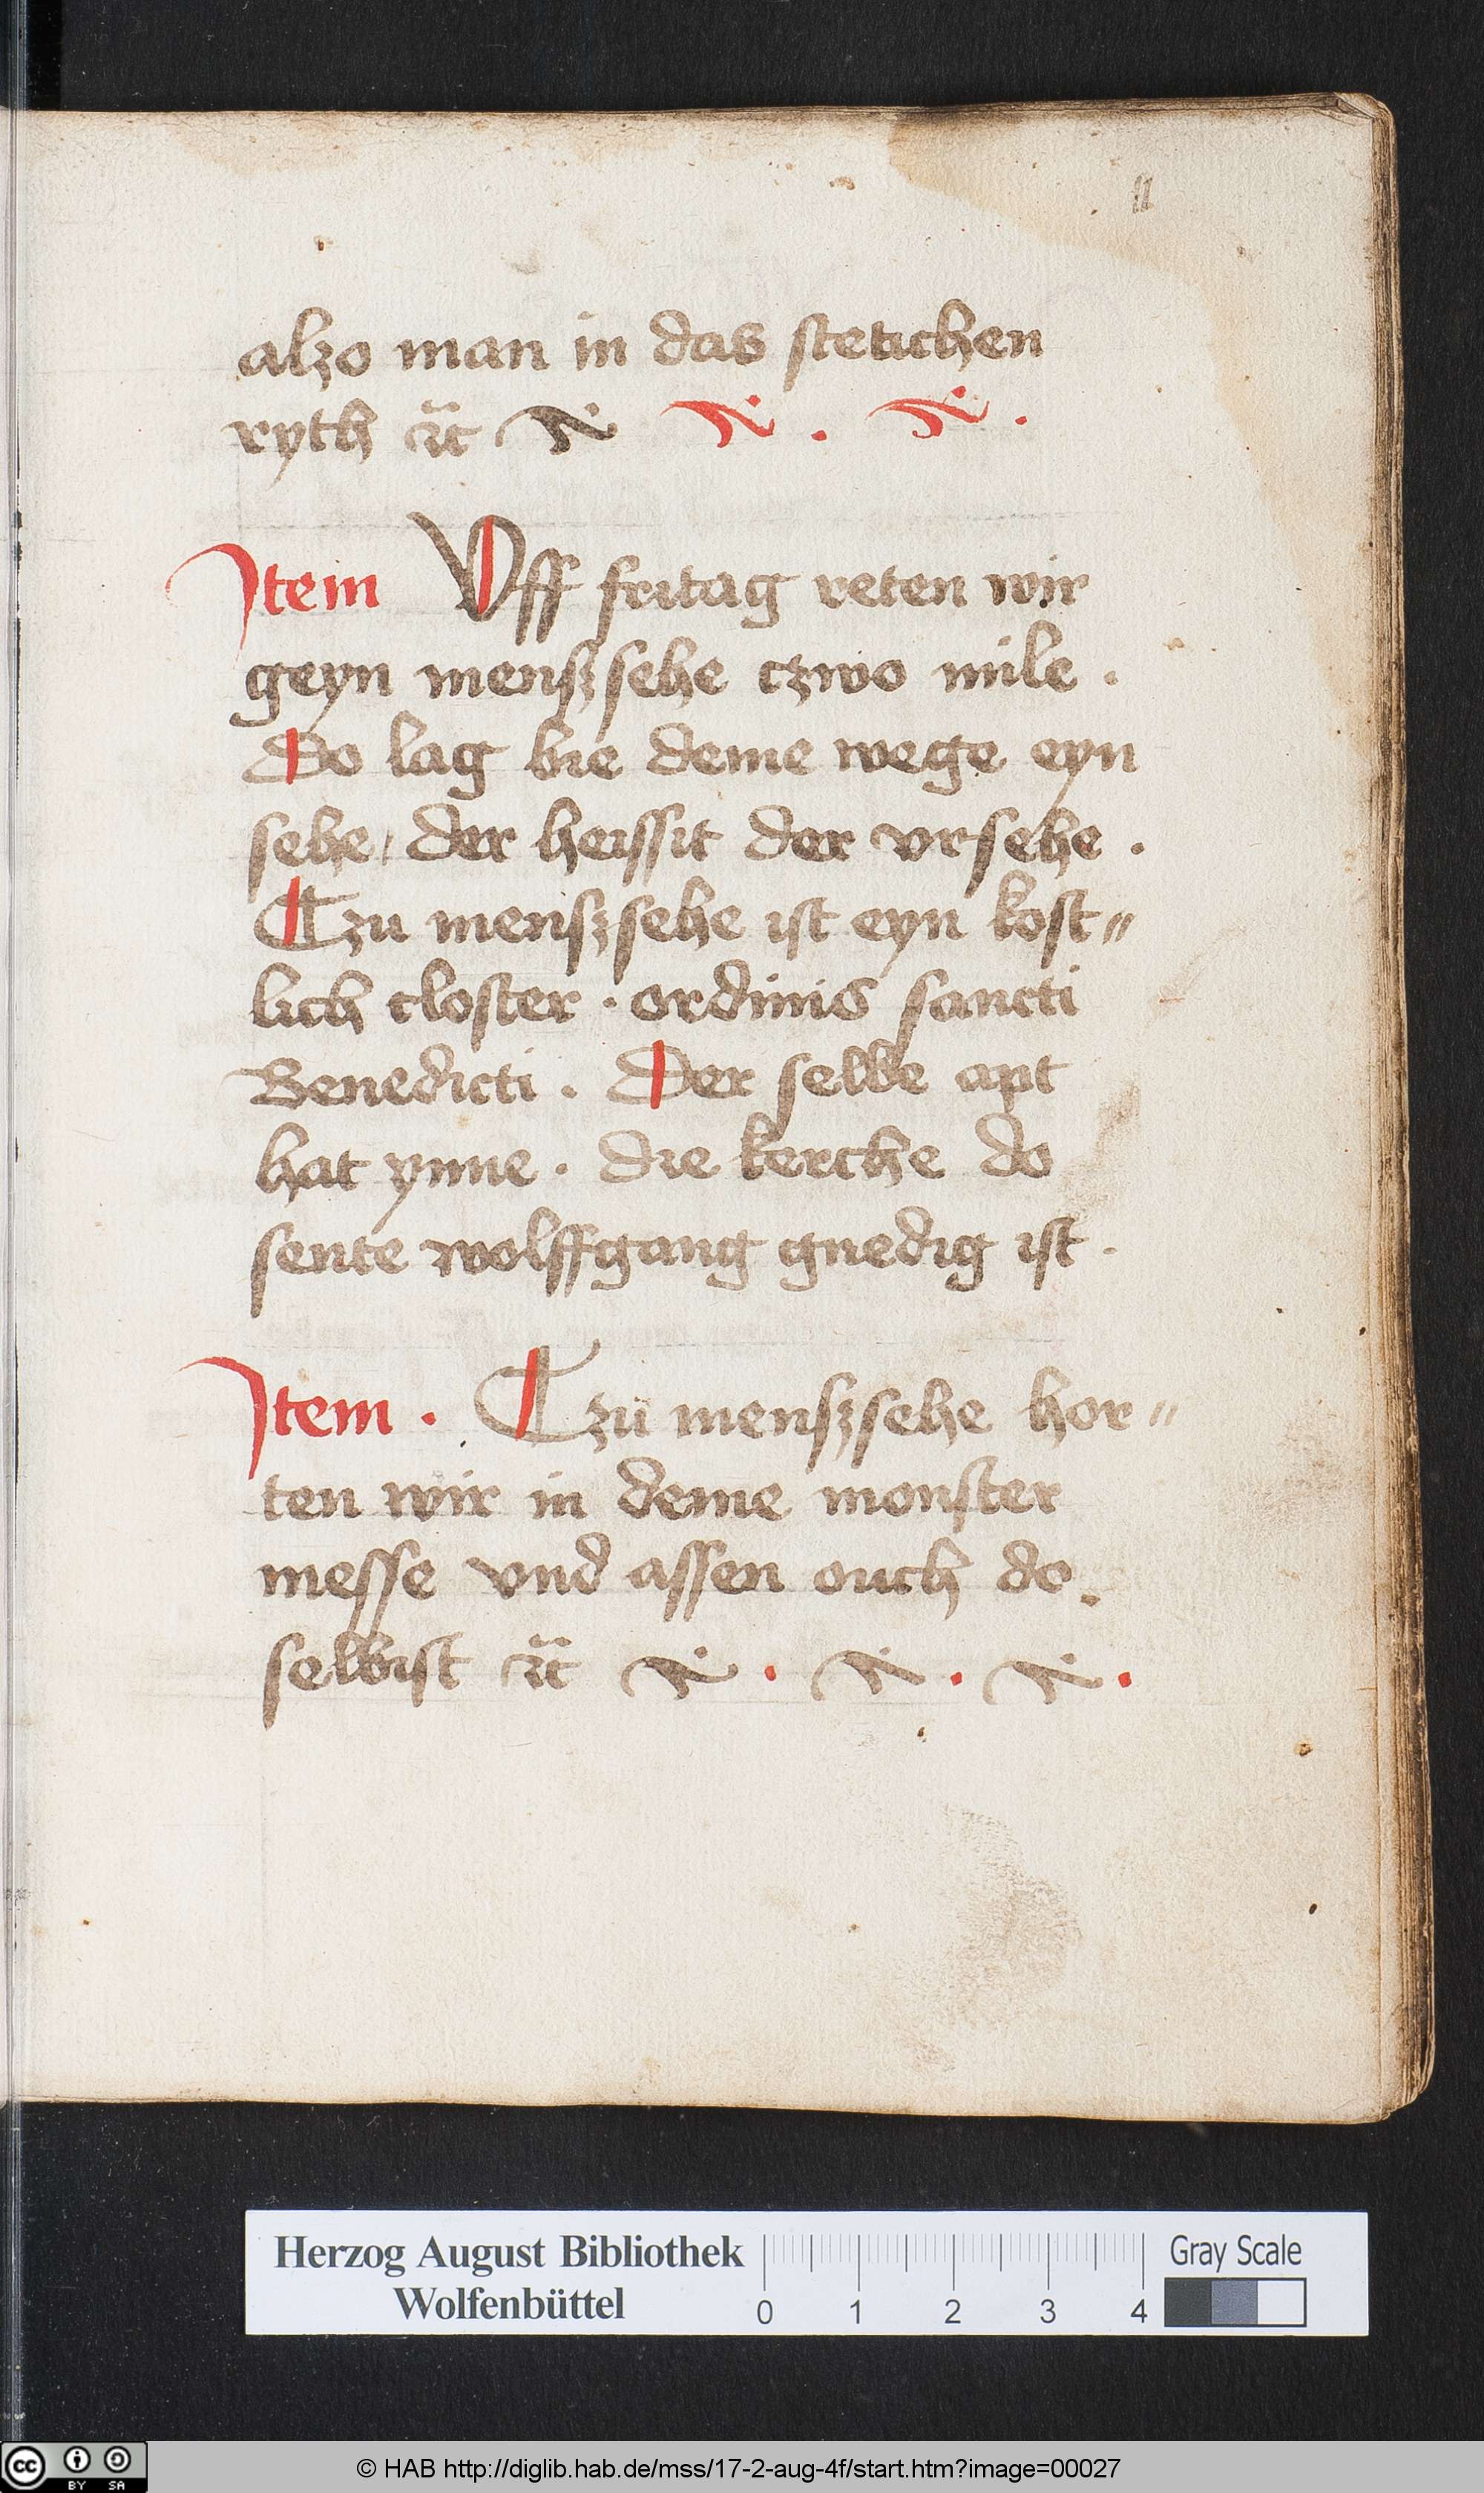 11
alzo man in das stetichen
ryth ꝛc̃
Item Vff fritag reten wir
geyn menszsehe czwo mile .
Do lag bie deme wege eyn
sehe / der heissit der vrsehe .
Czu menszsehe ist eyn kost〃
lich closter . ordinis sancti
Benedicti . Der selbe apt
hat ynne . die kerche do
sente wolffgang gnedig ist .
Item . Czu menszsehe hor〃
ten wir in deme monster
messe vnd assen ouch do .
selbist ꝛc̃
Herzog August Bibliothek
Wolfenbüttel
0 1 2 3 4
Gray Scale
cc BY SA
© HAB http://diglib.hab.de/mss/17-2-aug-4f/start.htm?image=00027